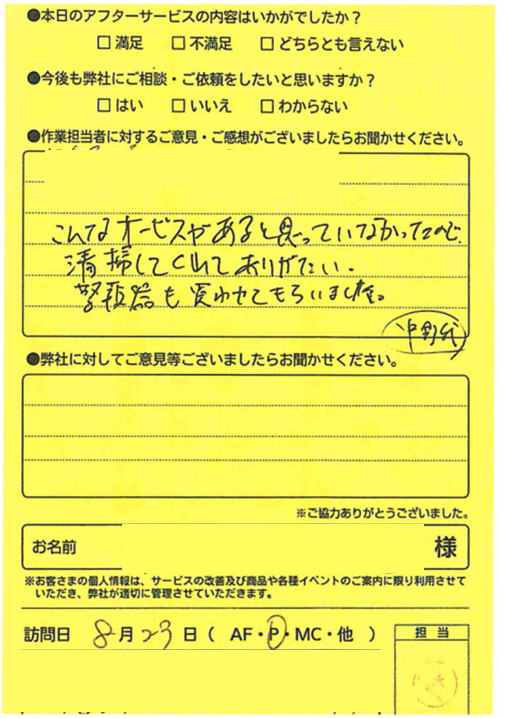 ●本日のアフターサービスの内容はいかがでしたか？
□ 満足 □ 不満足 □ どちらとも言えない
●今後も弊社にご相談・ご依頼をしたいと思いますか？
□ はい □ いいえ □ わからない
●作業担当者に対するご意見・ご感想がございましたらお聞かせください。
こんなサービスがあると思っていなかったので
清掃してくれてありがたい。
警報器も買わせてもらいました。
●弊社に対してご意見等ございましたらお聞かせください。
※ご協力ありがとうございました。
お名前 様
※お客さまの個人情報は、サービスの改善及び商品や各種イベントのご案内に限り利用させて
いただき、弊社が適切に管理させていただきます。
訪問日 8月23日（ AF・P・MC・他 ）
担当